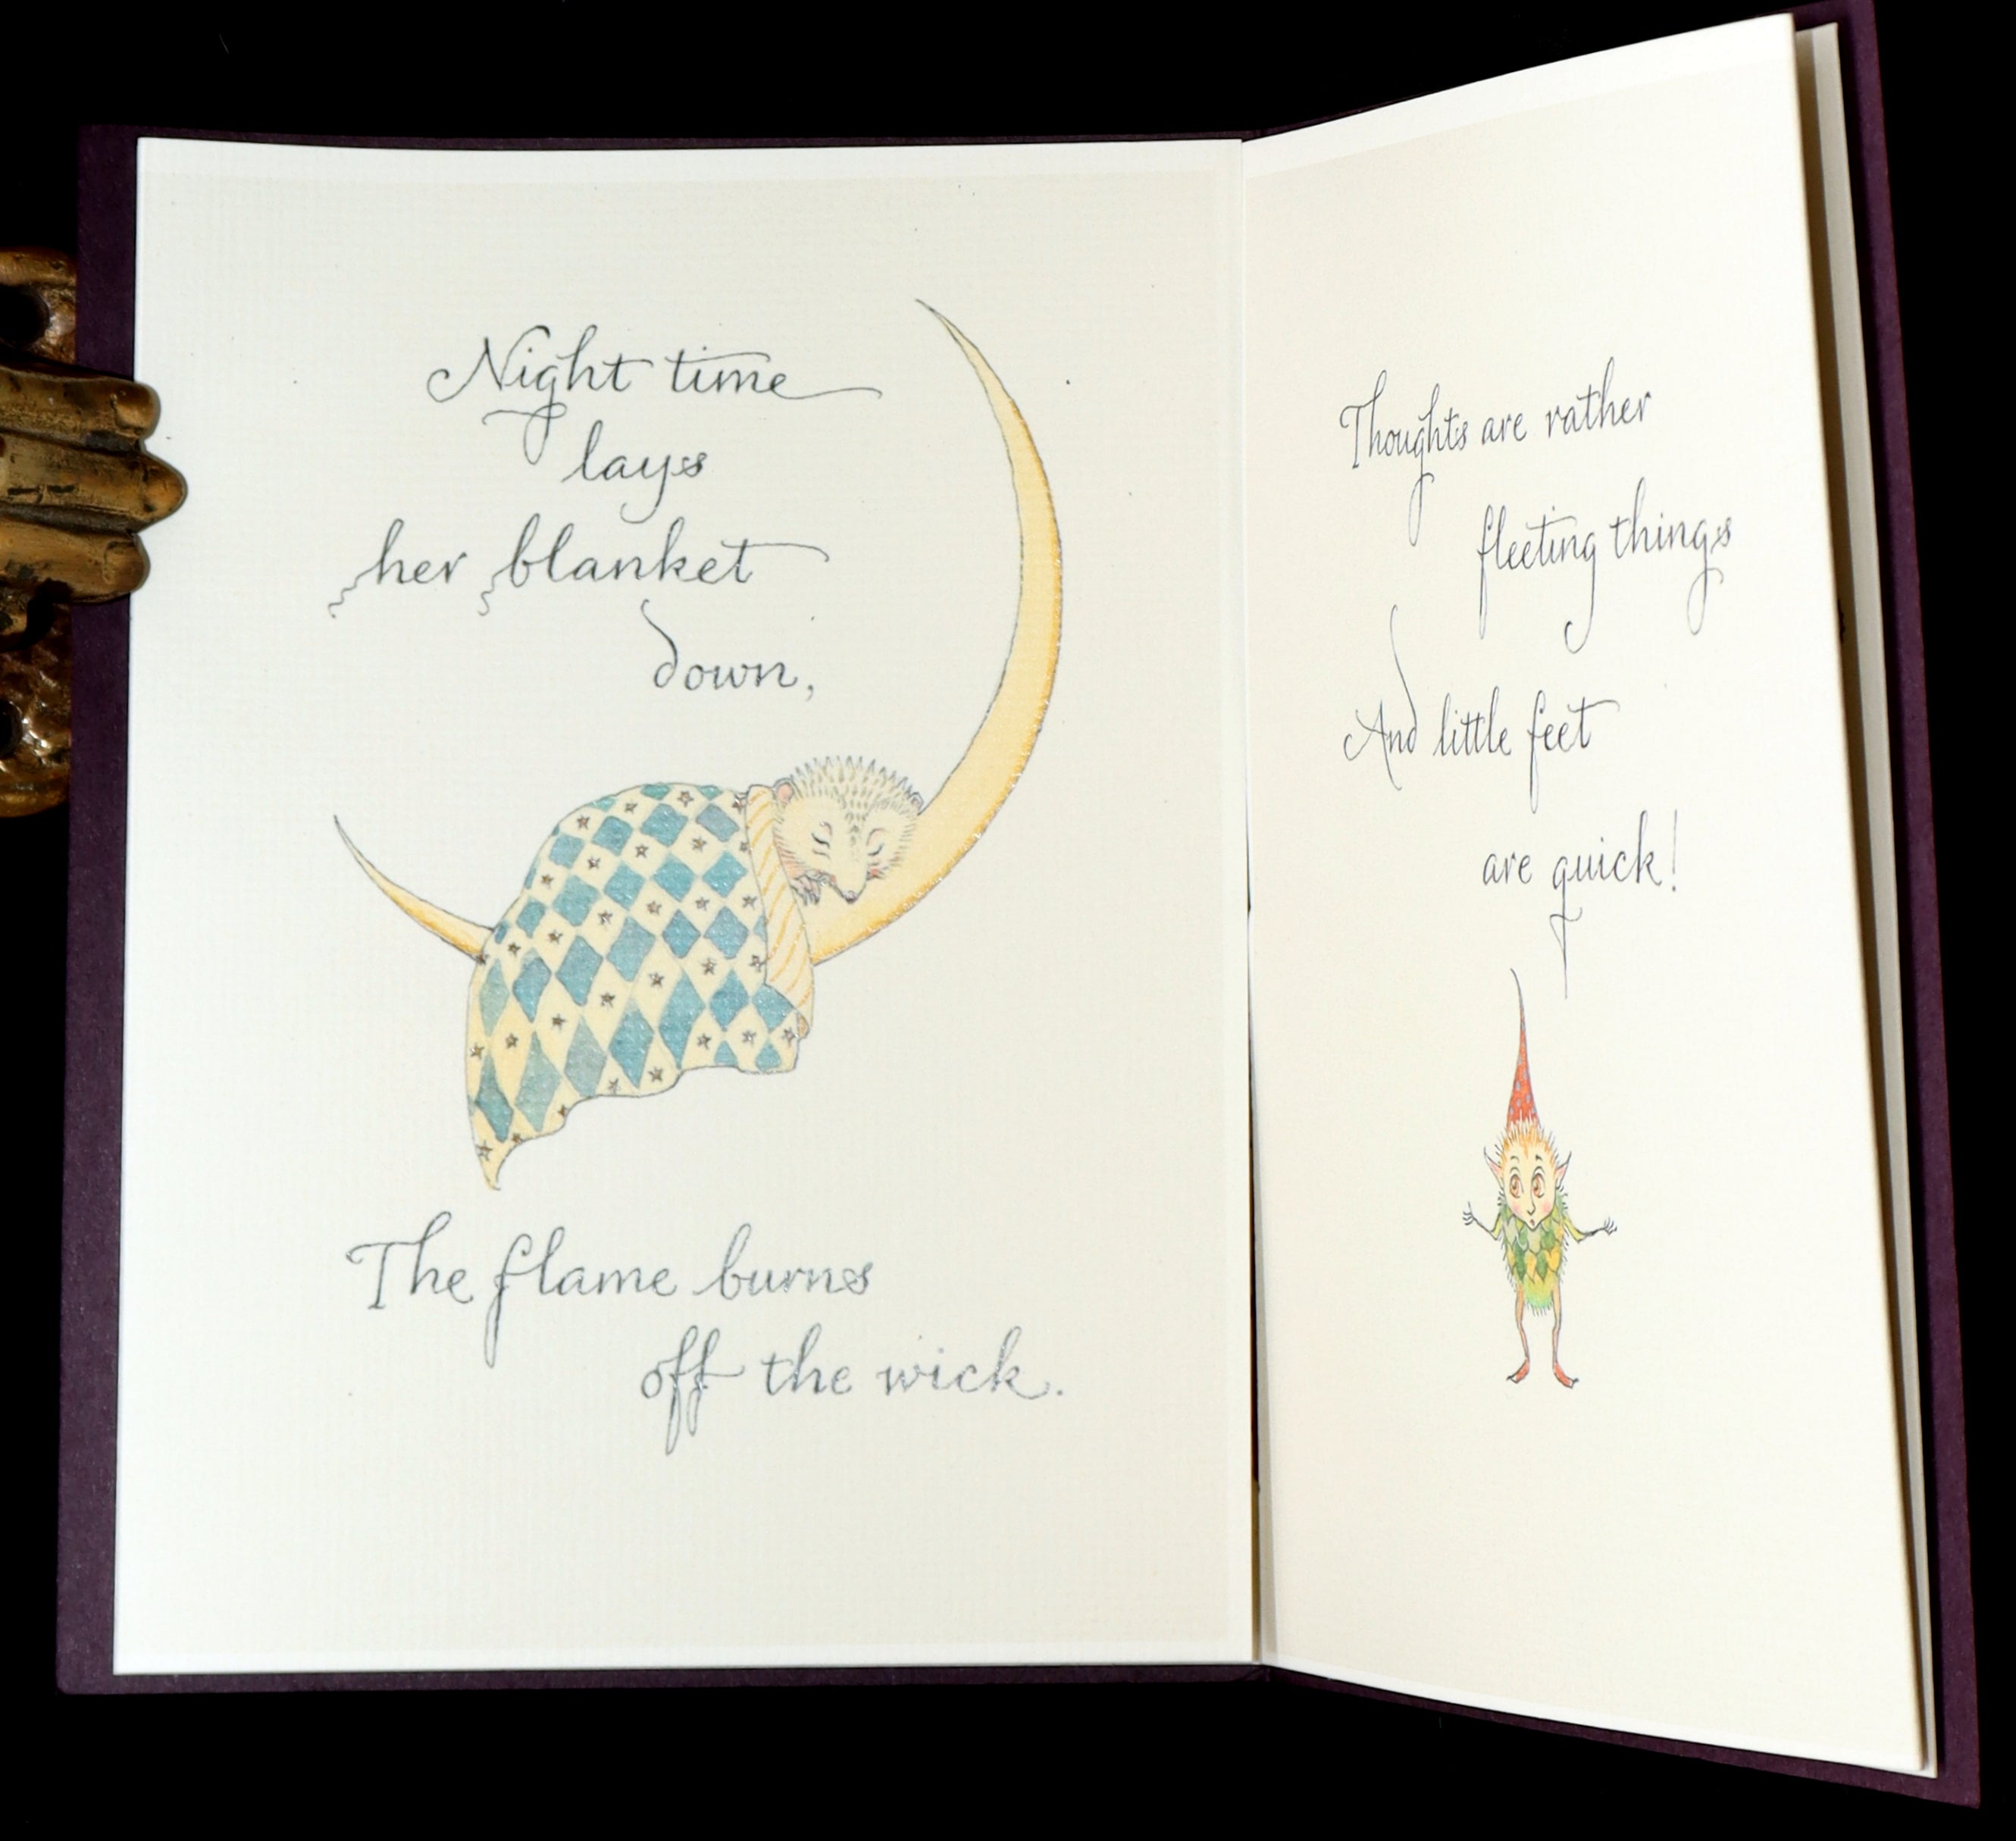 Night time
lays
her blanket
down,
The flame burns
off the wick.
Thoughts are rather
fleeting things
And little feet
are quick!